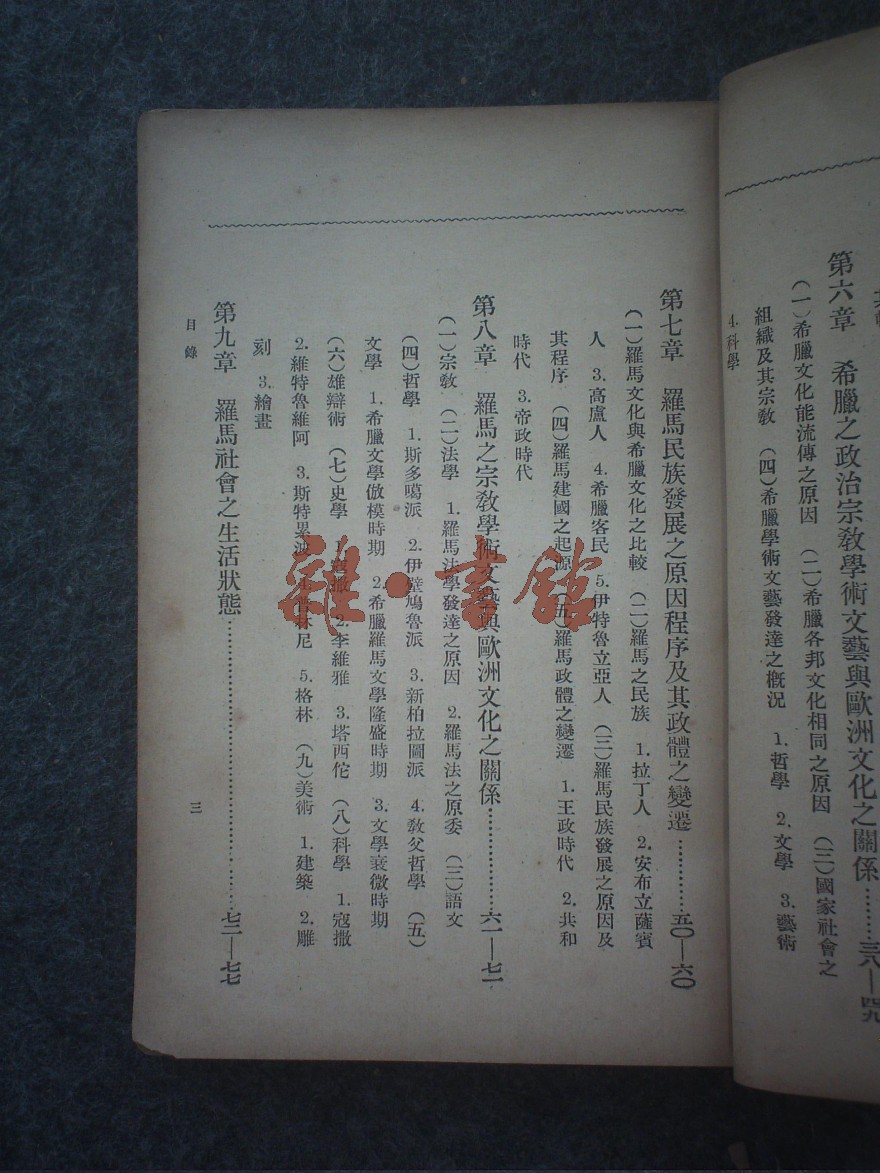 第六章　希臘之政治宗敎學術文藝與歐洲文化之關係………三八—四九
(一)希臘文化能流傳之原因　(二)希臘各邦文化相同之原因　(三)國家社會之
組織及其宗敎　(四)希臘學術文藝發達之概況　1.哲學　2.文學　3.藝術
4.科學
第七章　羅馬民族發展之原因程序及其政體之變遷…………五〇—六〇
(一)羅馬文化與希臘文化之比較　(二)羅馬之民族　1.拉丁人　2.安布立薩賓
人　3.高盧人　4.希臘客民　5.伊特魯立亞人　(三)羅馬民族發展之原因及
其程序　(四)羅馬建國之起源　(五)羅馬政體之變遷　1.王政時代　2.共和
時代　3.帝政時代
第八章　羅馬之宗敎學術文藝與歐洲文化之關係………………六一—七一
(一)宗敎　(二)法學　1.羅馬法學發達之原因　2.羅馬法之原委　(三)語文
(四)哲學　1.斯多噶派　2.伊壁鳩魯派　3.新柏拉圖派　4.敎父哲學　(五)
文學　1.希臘文學倣模時期　2.希臘羅馬文學隆盛時期　3.文學衰微時期
(六)雄辯術　(七)史學　1.寇撒　2.李維雅　3.塔西佗　(八)科學　1.寇撒
2.維特魯維阿　3.斯特累波　4.普林尼　5.格林　(九)美術　1.建築　2.雕
刻　3.繪畫
第九章　羅馬社會之生活狀態………………………………七二—七七
目錄
三
雜·書館